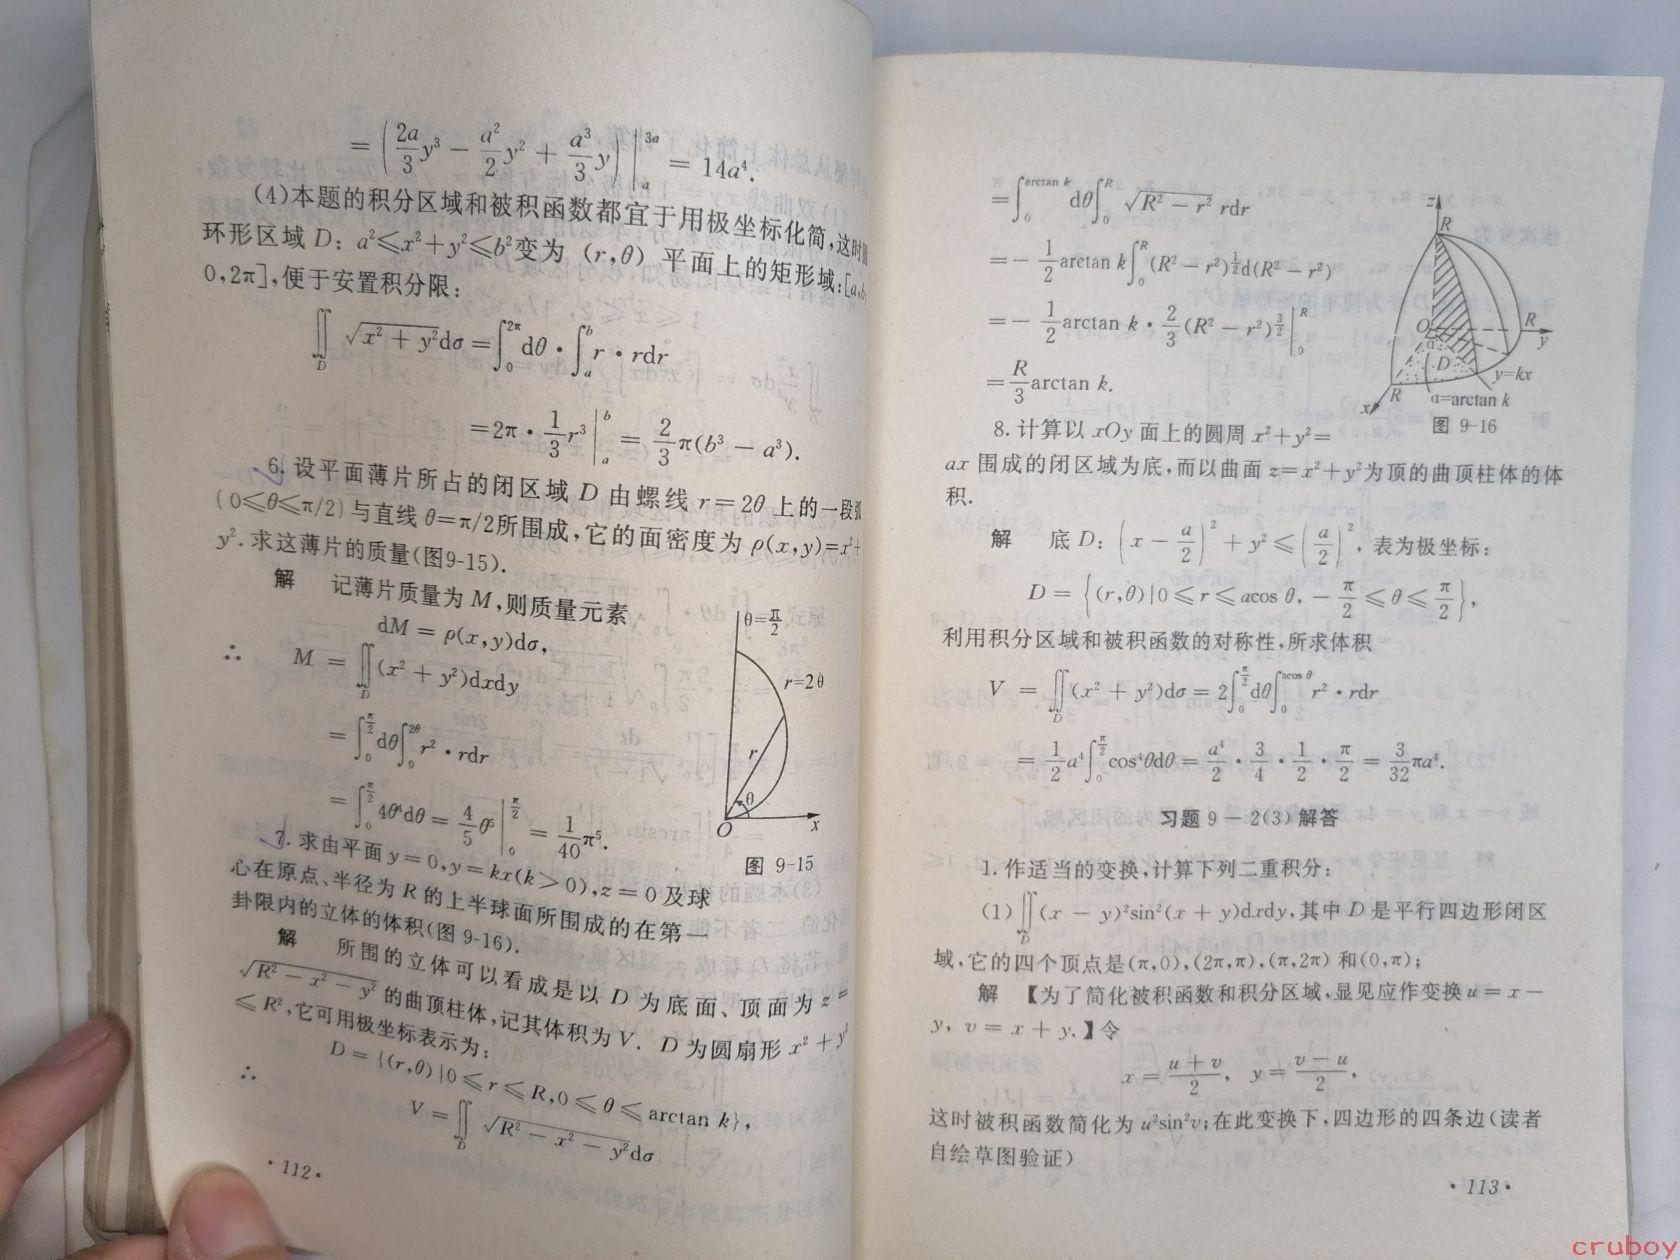 = (2a/3 y³ − a²/2 y² + a³/3 y) |ₐ³ᵃ = 14a⁴.
(4)本题的积分区域和被积函数都宜于用极坐标化简,这时
环形区域 D: a²≤x²+y²≤b²变为 (r,θ) 平面上的矩形域:[a,b;
0,2π],便于安置积分限:
∬_D √(x² + y²)dσ = ∫₀^{2π} dθ · ∫ₐᵇ r · rdr
= 2π · 1/3 r³ |ₐᵇ = 2/3 π(b³ − a³).
6. 设平面薄片所占的闭区域 D 由螺线 r = 2θ 上的一段弧
(0≤θ≤π/2)与直线 θ=π/2所围成,它的面密度为 ρ(x,y)=x²+
y².求这薄片的质量(图9-15).
解 记薄片质量为 M,则质量元素
dM = ρ(x,y)dσ,
∴ M = ∬_D (x² + y²)dxdy
= ∫₀^{π/2} dθ ∫₀^{2θ} r² · rdr
= ∫₀^{π/2} 4θ⁴dθ = 4/5 θ⁵ |₀^{π/2} = 1/40 π⁵.
θ=π/2
r=2θ
r
θ
O
x
图 9-15
7. 求由平面 y = 0,y = kx(k > 0),z = 0 及球
心在原点、半径为 R 的上半球面所围成的在第一
封限内的立体的体积(图 9-16).
解 所围的立体可以看成是以 D 为底面、顶面为 z =
√(R² − x² − y²) 的曲顶柱体,记其体积为 V. D 为圆扇形 x² + y²
≤ R²,它可用极坐标表示为:
D = {(r,θ)|0 ≤ r ≤ R,0 ≤ θ ≤ arctan k},
∴ V = ∬_D √(R² − x² − y²)dσ
·112·
= ∫₀^{arctan k} dθ ∫₀^R √(R² − r²) rdr
= − 1/2 arctan k ∫₀^R (R² − r²)^{1/2} d(R² − r²)
= − 1/2 arctan k · 2/3 (R² − r²)^{3/2} |₀^R
= R/3 arctan k.
z
R
O
R
y
α
D
y=kx
R
x
α=arctan k
图 9-16
8. 计算以 xOy 面上的圆周 x²+y²=
ax 围成的闭区域为底,而以曲面 z=x²+y²为顶的曲顶柱体的体
积.
解 底 D: (x − a/2)² + y² ≤ (a/2)², 表为极坐标:
D = {(r,θ)|0 ≤ r ≤ acos θ, − π/2 ≤ θ ≤ π/2},
利用积分区域和被积函数的对称性,所求体积
V = ∬_D (x² + y²)dσ = 2∫₀^{π/2} dθ ∫₀^{acos θ} r² · rdr
= 1/2 a⁴ ∫₀^{π/2} cos⁴θdθ = a⁴/2 · 3/4 · 1/2 · π/2 = 3/32 πa⁴.
习题 9 − 2(3) 解答
1. 作适当的变换,计算下列二重积分:
(1) ∬_D (x − y)²sin²(x + y)dxdy,其中 D 是平行四边形闭区
域,它的四个顶点是(π,0),(2π,π),(π,2π) 和(0,π);
解 【为了简化被积函数和积分区域,显见应作变换 u = x −
y, v = x + y.】令
x = (u + v)/2, y = (v − u)/2,
这时被积函数简化为 u²sin²v;在此变换下,四边形的四条边(读者
自绘草图验证)
·113·
cruboy